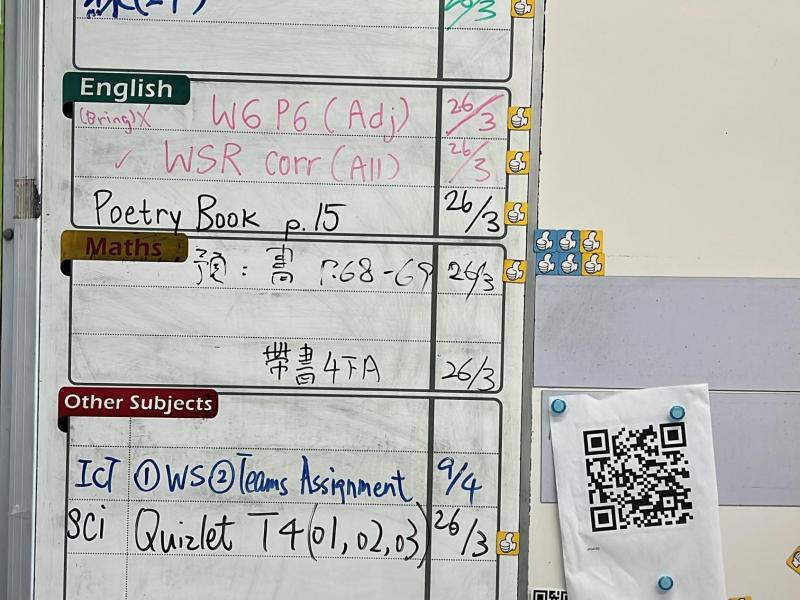 26/3
English
(Bring)X W6 P6 (Adj) 26/3
✓ WSR corr (All) 26/3
Poetry Book p.15 26/3
Maths
預：書 P.68-69 26/3
帶書 4下A 26/3
Other Subjects
ICT ①WS ②Teams Assignment 9/4
SCi Quizlet T4(01, 02, 03) 26/3